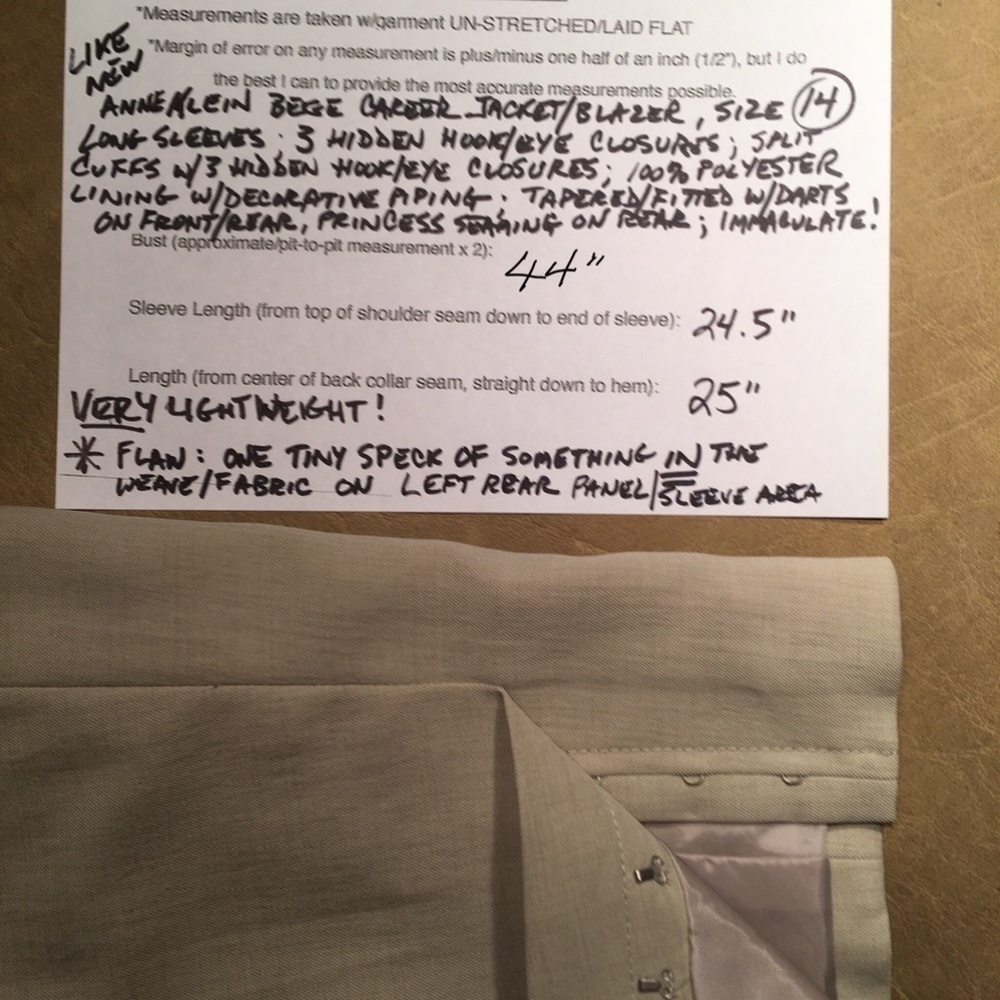 *Measurements are taken w/garment UN-STRETCHED/LAID FLAT
LIKE NEW
*Margin of error on any measurement is plus/minus one half of an inch (1/2"), but I do
the best I can to provide the most accurate measurements possible.
ANNE KLEIN BEIGE CAREER JACKET/BLAZER, SIZE 14
LONG SLEEVES; 3 HIDDEN HOOK/EYE CLOSURES; SPLIT
CUFFS W/3 HIDDEN HOOK/EYE CLOSURES; 100% POLYESTER
LINING W/DECORATIVE PIPING; TAPERED/FITTED W/DARTS
ON FRONT/REAR, PRINCESS SEAMING ON REAR; IMMACULATE!
Bust (approximate/pit-to-pit measurement x 2): 44"
Sleeve Length (from top of shoulder seam down to end of sleeve): 24.5"
Length (from center of back collar seam, straight down to hem): 25"
VERY LIGHTWEIGHT!
* FLAW: ONE TINY SPECK OF SOMETHING IN THE
WEAVE/FABRIC ON LEFT REAR PANEL/SLEEVE AREA